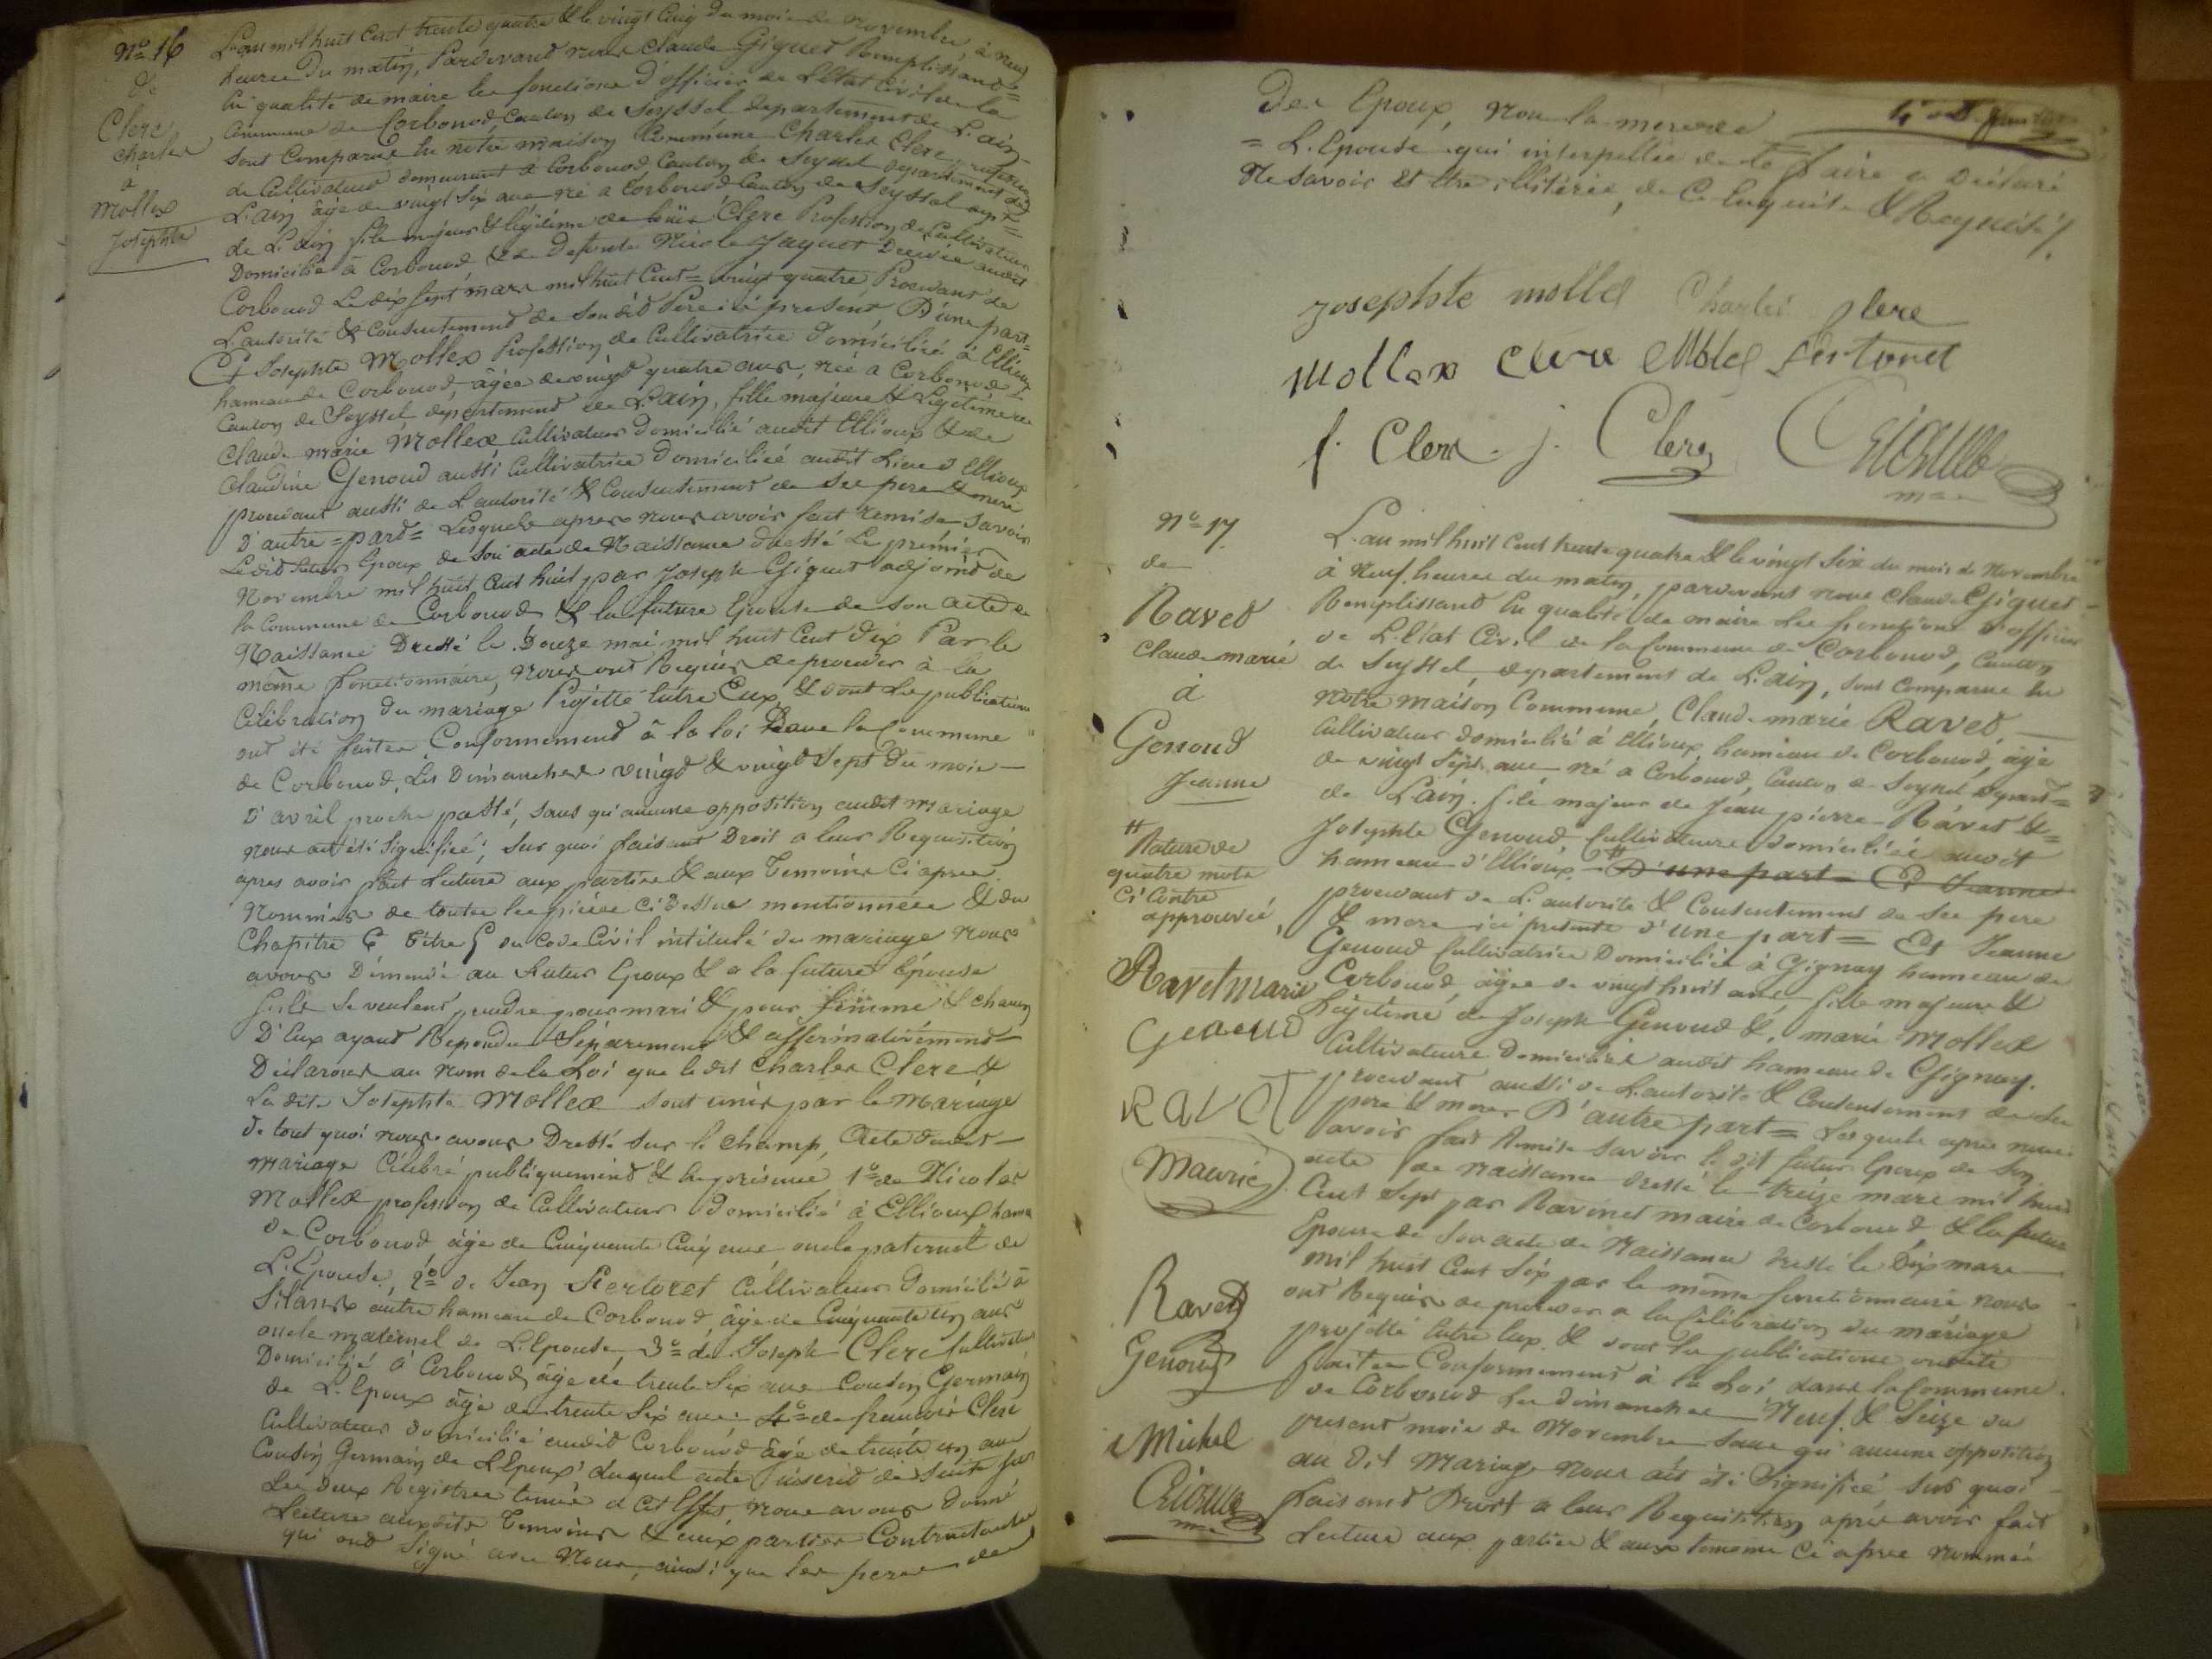 N.o 16
de
Clerc
Charles
à
Mollex
Josephte
L'an mil huit Cent trente quatre & le vingt Cinq du mois de Novembre, à neuf
heures du matin, Pardevant nous Claude Giguet Remplissant
En qualité de maire les fonctions d'officier de L'Etat Civil de la
Commune de Corbonod, Canton de Seyssel departement de L'ain
sont Comparus En notre maison Commune Charles Clerc, profession
de Cultivateur demeurant à Corbonod Canton de Seyssel departement de
L'ain âgé de vingt six ans né a Corbonod Canton de Seyssel dept=
de L'ain fils majeur & légitime de Clerc Profession de Cultivateur
Domicilié à Corbonod & de Defunte Nicole Jaquet Decédée audit
Corbonod Le dix sept mars mil huit Cent= vingt quatre Procedant de
L'autorité & Consentement de son dit Père ici présent D'une part=
Et Josephte Mollex Profession de Cultivatrice domiciliée à Ellioux
hameau de Corbonod, âgée de vingt quatre ans, née à Corbonod
Canton de Seyssel departement de L'ain, fille majeure & Légitime de
Claude marie Mollex Cultivateur domicilié audit Ellioux & de
Claudine Genoud aussi Cultivatrice domiciliée audit Lieu d'Ellioux
procedant aussi de L'autorité & Consentement de ses pere & mere
D'autre=part= Lesquels apres nous avoir fait remise Savoir
Ledit futur Epoux de son acte de Naissance dressé Le premier
Novembre mil huit Cent huit par Joseph Giguet adjoint de
la Commune de Corbonod & la future Epouse de son acte de
Naissance Dressé le Douze mai mil huit Cent dix Par le
même fonctionnaire, Nous ont Requis de proceder à la
Célébration du mariage Projetté Entre Eux, & dont Les publications
ont été faites Conformement à la loi Dans la Commune
de Corbonod, Les Dimanches vingt & vingt Sept du mois
D'avril proche passé, sans qu'aucune opposition audit Mariage
nous ait été Signifiée; sur quoi faisant Droit a leur Requisition
apres avoir fait Lecture aux parties & aux Temoins Ci apres
Nommés de toutes les pièces Ci dessus mentionnées & du
Chapitre 6 titre 5 du Code Civil intitulé du mariage nous
avons Demandé au futur Epoux & a la future Epouse
s'ils se veulent prendre pour mari & pour femme & chacun
D'Eux ayant Repondu Séparement & affirmativement
Déclarons au Nom de la Loi que le dit Charles Clerc &
La dite Josephte Mollex sont unis par le Mariage
de tout quoi nous avons Dressé sur le Champ, Acte dudit
Mariage Célébré publiquement & En présence 1.o de Nicolas
Mollex profession de Cultivateur domicilié à Ellioux hameau
de Corbonod âgé de Cinquante Cinq ans oncle paternel de
L'Epouse, 2.o de Jean Pertoret Cultivateur Domicilié à
Silans autre hameau de Corbonod âgé de Cinquante un ans
oncle maternel de L'Epouse, 3.o de Joseph Clerc Cultivateur
Domicilié à Corbonod, âgé de trente six ans Cousin Germain
de L'Epoux âgé de trente six ans. 4.o de françois Clerc
Cultivateur domicilié audit Corbonod âgé de trente un ans
Cousin Germain de L'Epoux duquel acte inscrit de Suite sur
Les deux Registres tenus à cet Effet nous avons donné
Lecture auxdits Temoins & aux parties Contractantes
qui ont Signé avec Nous, ainsi que les peres des
des Epoux, non la mere de
= L'Epouse qui interpellée de le faire a déclaré
Ne savoir Et être illitérée, de Ce Enquise & Requise/.
Josephte mollex Charles Clerc
Mollex Clerc Pertoret
f. Clerc. j. Clerc Giguet
mre
N.o 17
de
Ravet
Claude marie
à
Genoud
Jeanne
Rature de
quatre mots
Ci Contre
approuvée,
Ravet Marie
Genoud
RAVET
Maurice
Ravet
Genoud
Michel
Giguet
mre
L'an mil huit Cent trente quatre & le vingt Six du mois de Novembre
à Neuf heures du matin, pardevant nous Claude Giguet
Remplissant En qualité de maire les fonctions d'officier
de L'Etat Civil de la Commune de Corbonod, Canton
de Seyssel, departement de L'ain, sont Comparus En
Notre maison Commune, Claude marie Ravet,
Cultivateur domicilié à Ellioux, hameau de Corbonod, âgé
de vingt Sept ans né a Corbonod, Canton de Seyssel Depart=
de L'ain. fils majeur de Jean pierre Ravet &=
Josephte Genoud Cultivateurs domiciliés audit
hameau d'Ellioux D'une part= Et Jeanne
procedant de L'autorité & Consentement de ses pere
& mere ici présents d'une part= Et Jeanne
Genoud Cultivatrice Domiciliée à Gignay hameau de
Corbonod, âgée de vingt huit ans, fille majeure &
Légitime de Joseph Genoud & marie Mollex
Cultivateurs domiciliés audit hameau de Gignay.
procedant aussi de L'autorité & Consentement de ses
pere & mere D'autre part= Lesquels après nous
avoir fait Remise savoir le dit futur Epoux de son
acte de naissance dressé le treize mars mil huit
Cent Sept par Ravinet maire de Corbonod, & la future
Epouse de son acte de Naissance dressé le Dix mars
mil huit Cent Six par le même fonctionnaire nous
ont Requis de proceder a la Célébration du mariage
projetté Entre Eux & dont les publications ont été
faites Conformement à la Loi, dans la Commune
de Corbonod Les dimanches Neuf & Seize du
present mois de Novembre sans qu'aucune opposition
au dit Mariage Nous ait été Signifiée sur quoi
faisant Droit a leur Requisition après avoir fait
Lecture aux parties & aux temoins Ci après nommés